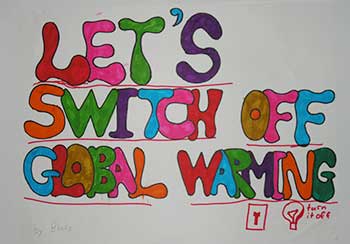 LET'S
SWITCH OFF
GLOBAL WARMING
turn
it off
by